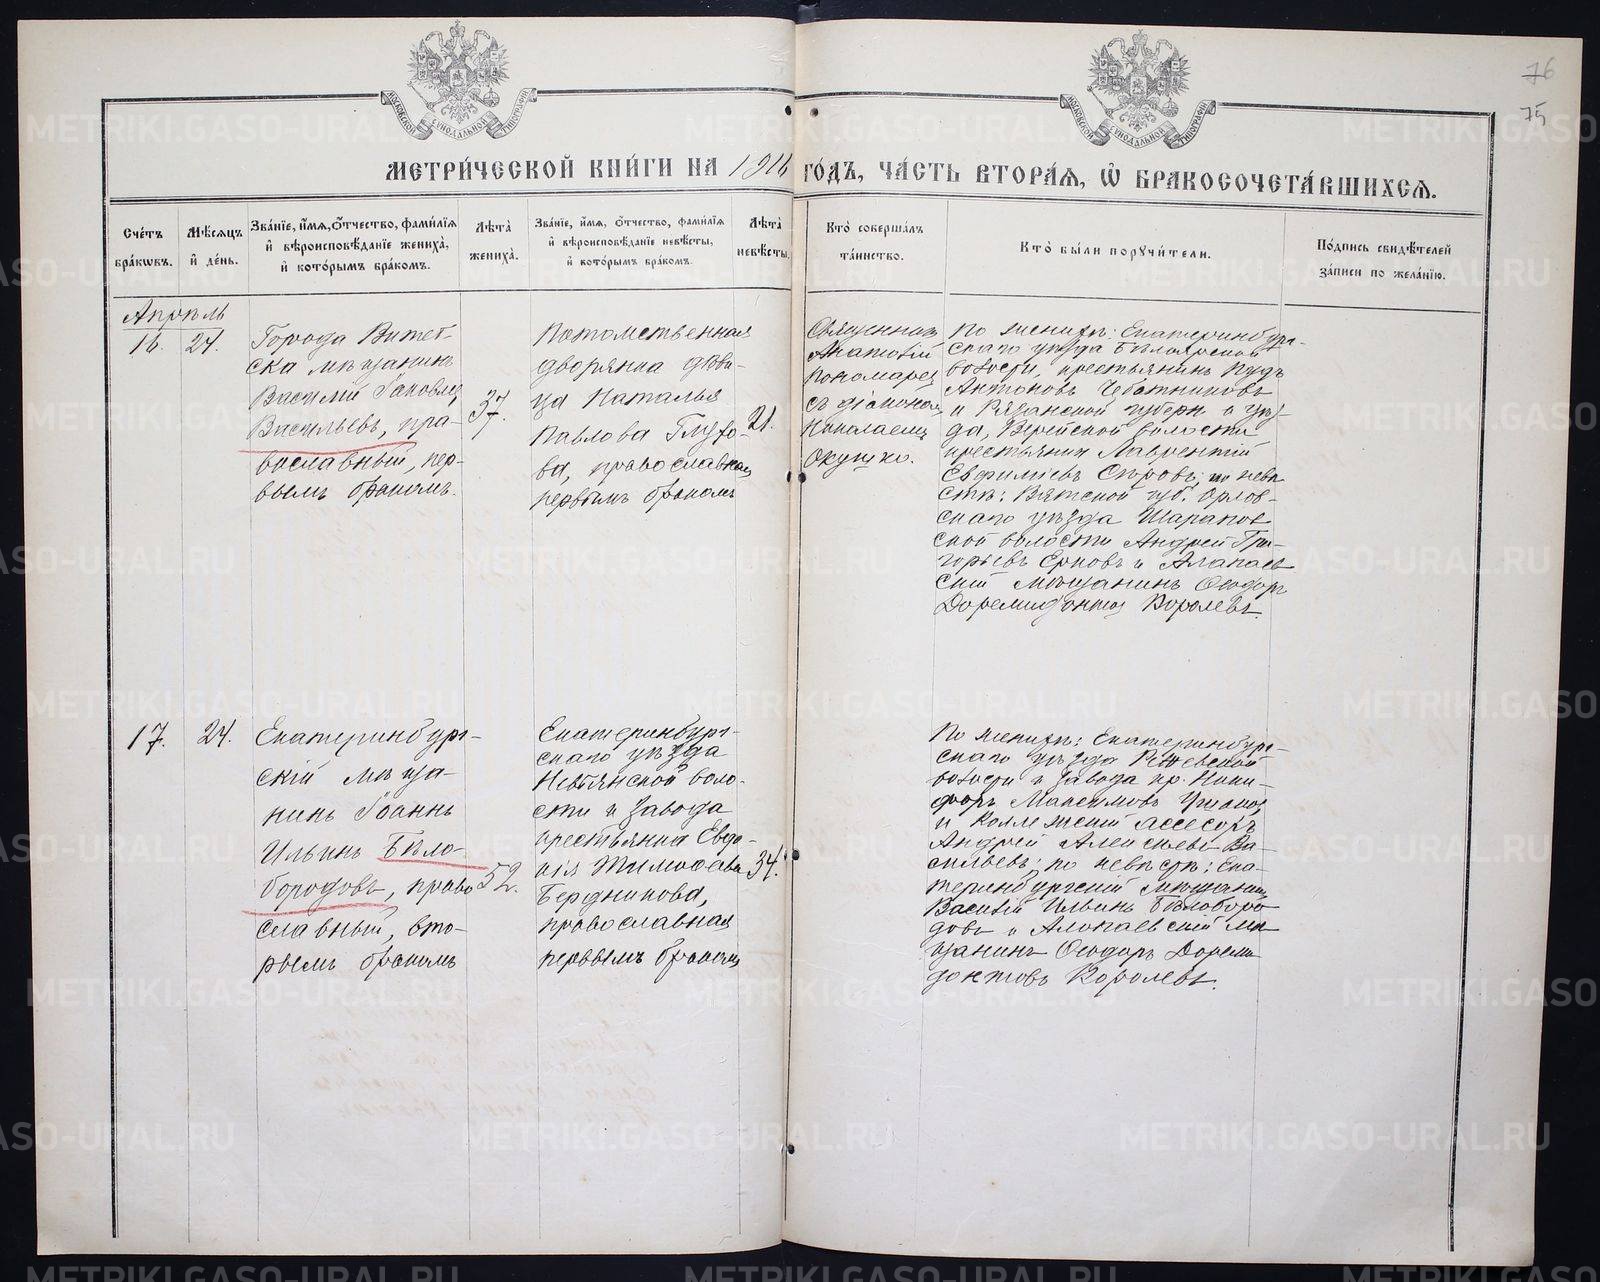 76
75
МОСКОВСКОЙ СѴНОДАЛЬНОЙ ТИПОГРАФІИ
МОСКОВСКОЙ СѴНОДАЛЬНОЙ ТИПОГРАФІИ
МЕТРИ́ЧЕСКОЙ КНИ́ГИ НА 1916 ГО́ДЪ, ЧА́СТЬ ВТОРА́Я, Ѡ҆ БРАКОСОЧЕТА́ВШИХСЯ.
Сче́тъ бра́кѡвъ.
Мѣ́сяцъ и҆ де́нь.
Зва́нїе, и҆́мя, ѻ҆́тчество, фами́лїя и҆ вѣроисповѣ́данїе жениха̀, и҆ кото́рымъ бра́комъ.
Лѣ́та̀ жениха̀.
Зва́нїе, и҆́мя, ѻ҆́тчество, фами́лїя и҆ вѣроисповѣ́данїе невѣ́сты, и҆ кото́рымъ бра́комъ.
Лѣ́та̀ невѣ́сты.
Кто̀ соверша́лъ та́инство.
Кто̀ бы́ли порꙋчи́тели.
По́дпись свидѣ́телей за́писи по жела́нїю.
Апрѣль
16.
24.
Города Витеб-
ска мѣщанинъ
Василій Іаковлев
Васильевъ, пра-
вославный, пер-
вымъ бракомъ.
37.
Потомственная
дворянка дѣви-
ца Наталья
Павлова Глухо-
ва, православная
первымъ бракомъ
21.
Священникъ
Анатолій
Пономарев
съ діакономъ
Николаемъ
по женихѣ: Екатеринбург-
скаго уѣзда Бѣлоярской
волости, крестьянинъ
Антоновъ Чеботниковъ
и Рязанской губерн. и уѣз-
да, волости
крестьянинъ Лаврентій
Евфиміевъ по невѣ-
стѣ: Вятской губ. Орлов-
скаго уѣзда Шарапов
ской волости Андрей Гри-
горьевъ и Алапаев
скій мѣщанинъ Ѳеодоръ
Доремидонтов Королевъ.
17.
24.
Екатеринбург-
скій мѣща-
нинъ Іоаннъ
Ильинъ Бѣло-
бородовъ, право
славный, вто-
рымъ бракомъ
52.
Екатеринбург-
скаго уѣзда
Невьянской воло-
сти и завода
крестьянка Евдо-
кія Тимоѳеева
Бердникова,
православная
первымъ бракомъ
34.
По женихѣ: Екатеринбург-
скаго уѣзда Режевской
волости и завода кр. Ники-
форъ Максимовъ
и коллежскій ассесоръ
Андрей Алексѣевъ Ва-
сильевъ; по невѣстѣ: Ека-
теринбургскій мѣщанинъ
Василій Ильинъ Бѣлоборо
довъ и Алапаевскій мѣ
щанинъ Ѳеодоръ Дореми
донтовъ Королевъ.
METRIKI.GASO-URAL.RU